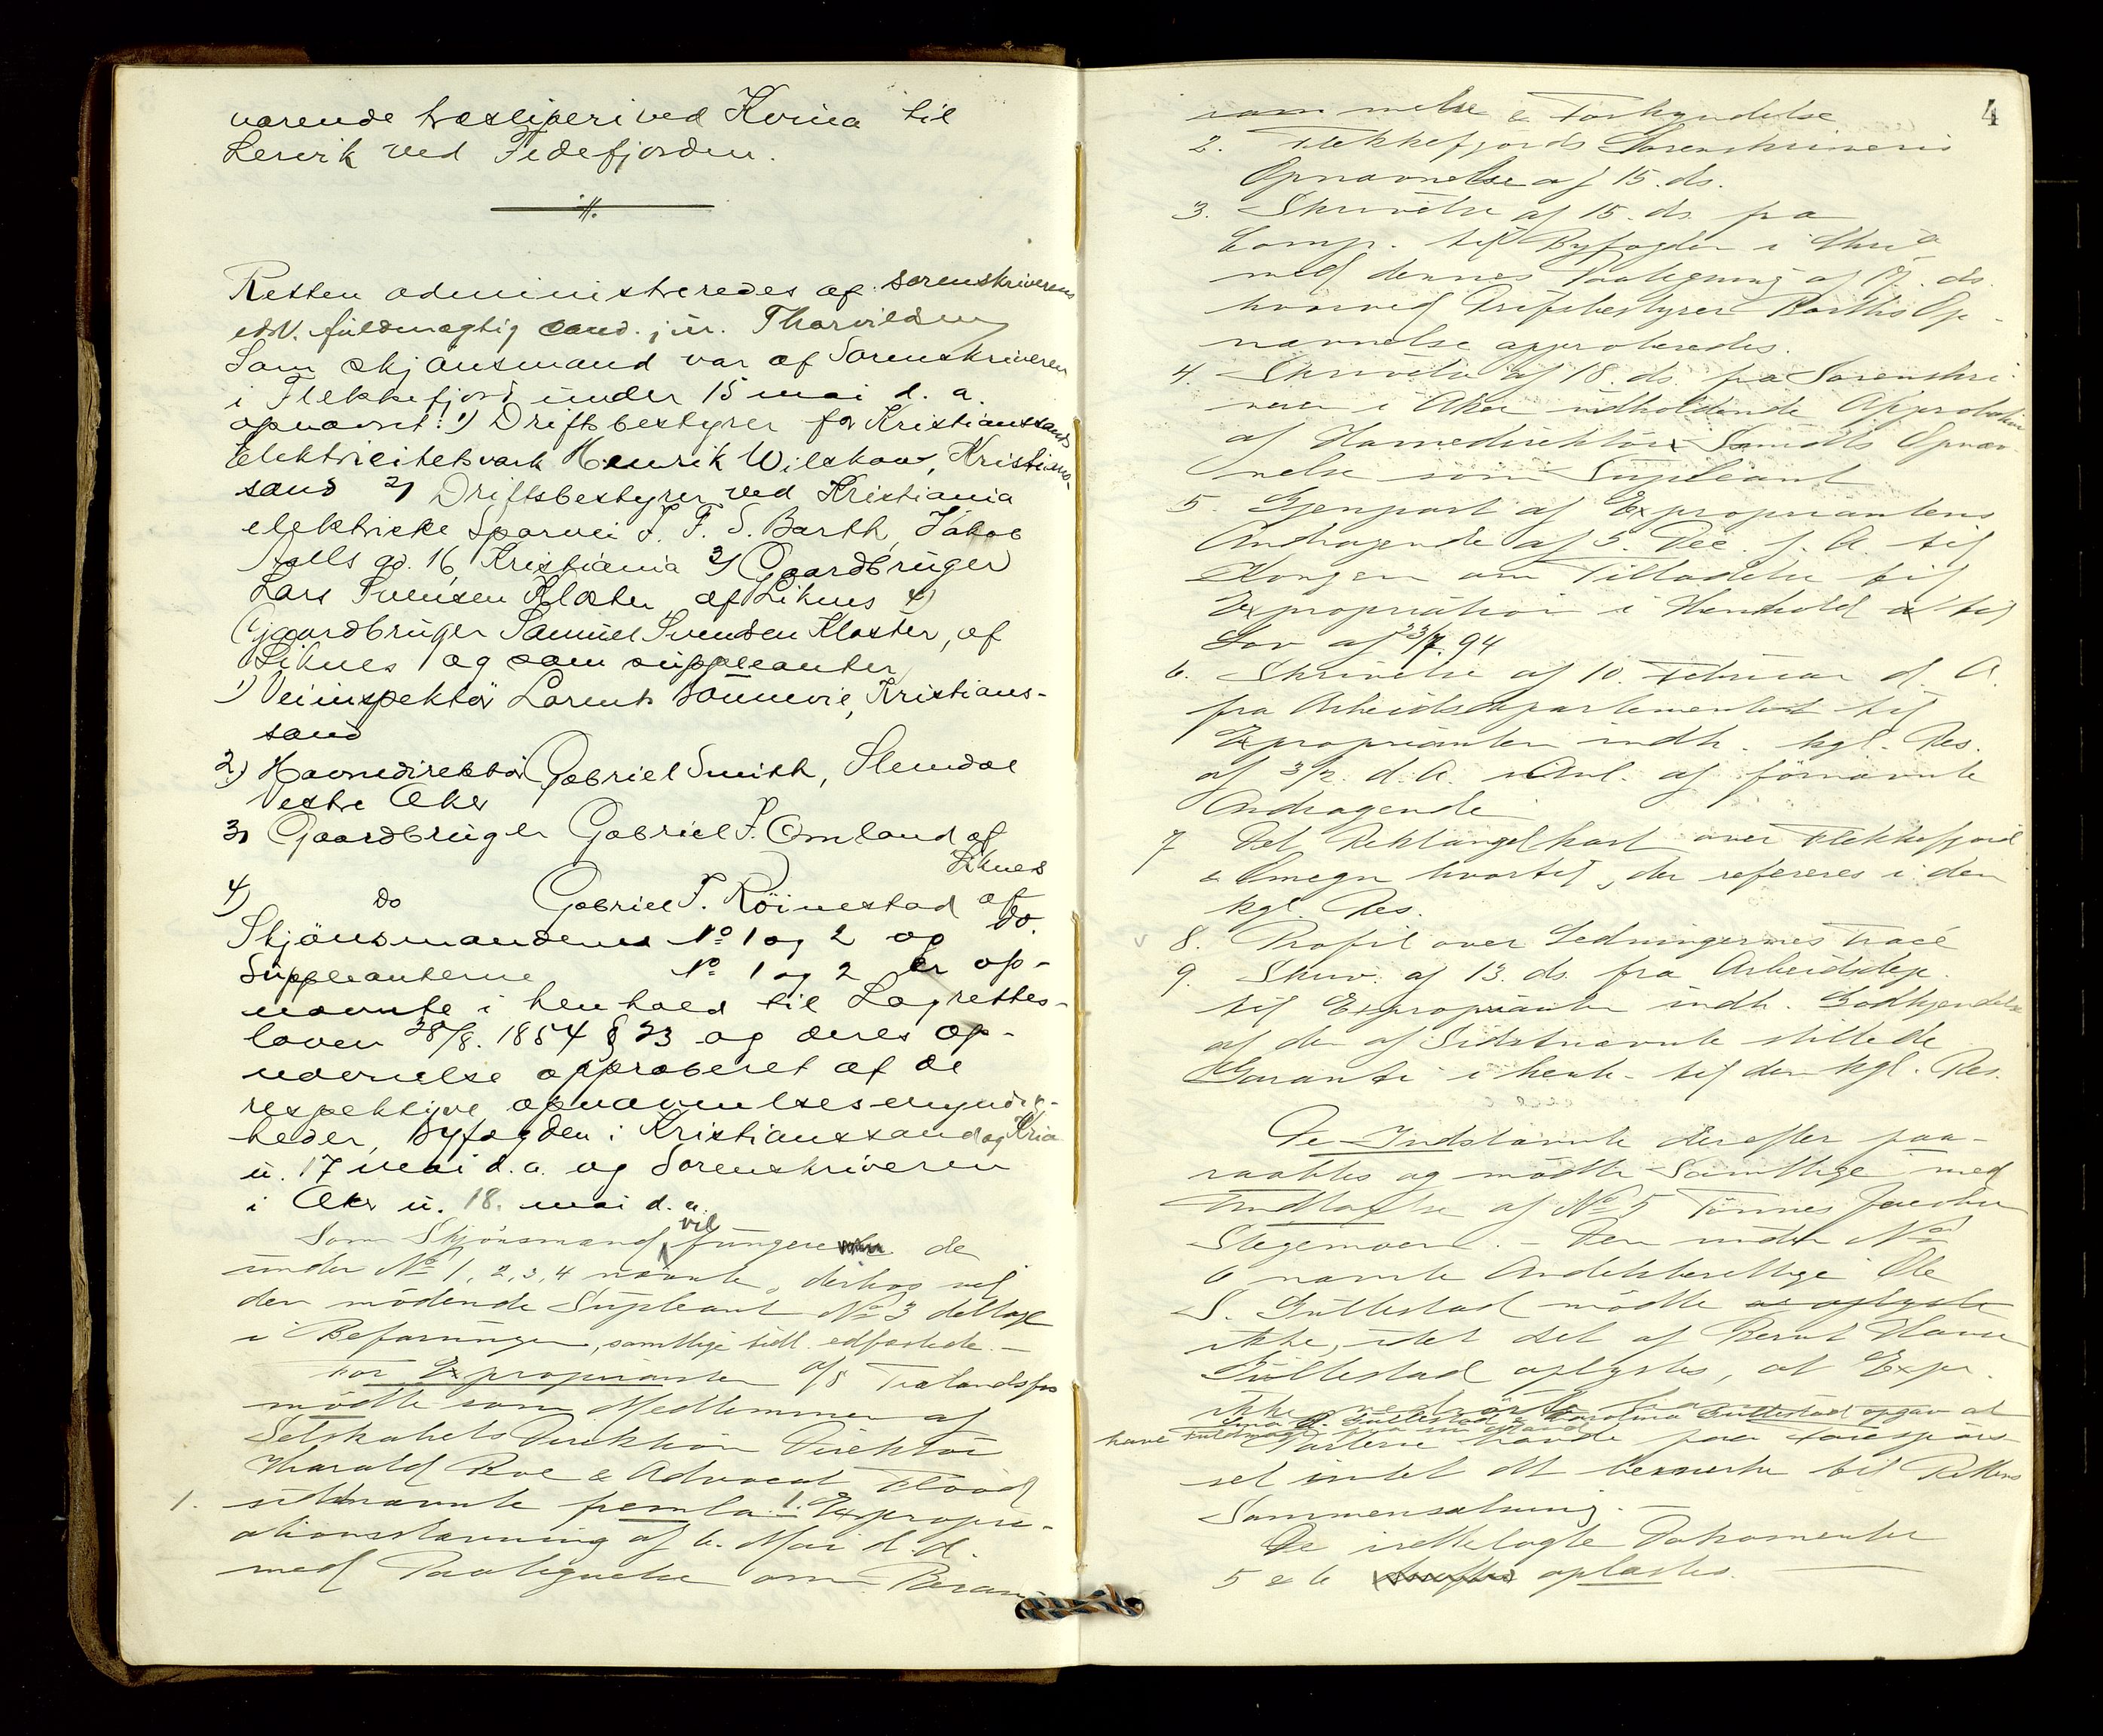 værende træsliperi ved Kvina til
Lervik ved Fedefjorden.
Retten administreredes af sorenskriverens
edsv. fuldmægtig cand. jur. Thorvildsen
Som skjønsmænd var af Sorenskriveren
i Flekkefjord under 15 mai d. a.
opnævnt: 1) Driftsbestyrer for Kristianssands
Elektricitetsværk Henrik Wilskow, Kristians-
sand 2) Driftsbestyrer ved Kristiania
elektriske Sporvei F. F. S. Barth, Jakob
Aalls gd. 16, Kristiania 3) Gaardbruger
Lars Svensen Kloster, af Liknes 4)
Gjaardbruger Samuel Svendsen Kloster, af
Liknes og som suppleanter
1) Veiinspektør Lorents Sømme, Kristians-
sand
2) Havnedirektør Gabriel Smith, Slemdal
Vestre Aker
3) Gaardbruger Gabriel T. Omland af
Liknes
4) do Gabriel T. Röinestad af
do.
Skjönsmændene No 1 og 2 og
Suppleanterne No 1 og 2 er op-
nævnte i henhold til Lagrettes-
loven 28/8. 1854 § 23 og deres op-
nævnelse approberet af de
respektive opnævnelsesmyndig-
heder, Byfogden i Kristianssand og Kria
u. 17 mai d. a. og Sorenskriveren
i Aker u. 18. mai d. a.
Som Skjönsmænd vil fungere de
under No 1, 2, 3, 4 nævnte, derhos vil
den mödende Supleant No 3 deltage
i Befaringen, samtlige tidl. edfæstede. —
For Exproprianten A/S Trælandsfos
mödte som Medlemmer af
Selskabets Direktion Direktör
Harald Boe & Advocat Flood
1. sidstnævnte fremla 1. Expropri-
ationsstævning af 6. Mai d. A.
med Paategnelse om Beram-
4
rammelse & Forkyndelse
2. Flekkefjords Sorenskriveris
Opnævnelse af 15. ds.
3. Skrivelse af 15. ds. fra
Comp. til Byfogden i Chria
med dennes Paategning af 17. ds.
hvorved Driftsbestyrer Barths Op-
nævnelse approberedes.
4. Skrivelse af 18. ds. fra Sorenskri-
veren i Aker indholdende Approbation
af Havnedirektör Smidts Opnæv-
nelse som Supleant
5. Gjenpart af Expropriantens
Andragende af 5. Dec. f. A. til
Kongen om Tilladelse til
Expropriation i Henhold til
Lov af 23/7 94
6. Skrivelse af 10. Februar d. A.
fra Arbeidsdepartementet til
Exproprianten indh. kgl. Res.
af 3/2 d. A. i Anl. af förnævnte
Andragende
7 Det Rektangelkart over Flekkefjord
& Omegn hvortil der refereres i den
kgl. Res.
8. Profil over Ledningernes Tracé
9. Skriv. af 13. ds. fra Arbeidsdep.
til Expropriante indh. Godkjendelse
af den af Sidstnævnte stillede
Garanti i henh. til den kgl. Res.
De Indstævnte derefter paa-
raabtes og mödte Samtlige med
Undtagelse af No 5 Tönnes Jacobsen
Stegemoen. — Den under No
6 nævnte Andelsberettige Ole
S. Gullestad mödte
ikke, idet det af Bernt Hansen
Gullestad oplystes, at Expr.
ikke
Gullestad & Karolina Gullestad opgav at
have Fuldmagt fra sin Mand
Parterne havde paa Forespörs-
sel intet at bemerke til Rettens
Sammensætning. —
De indtelagte Dokumenter
5 & 6 oplæstes.